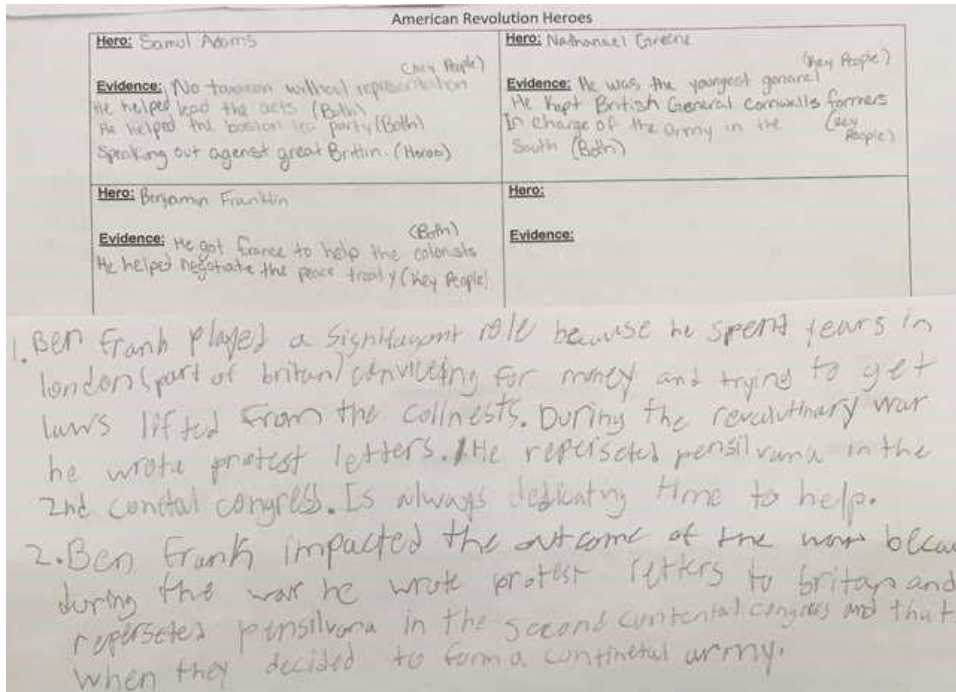 American Revolution Heroes
Hero: Samul Adams
(Key People)
Evidence: No taxation without representation
He helped lead the acts (Both)
He helped the boston tea party (Both)
Speaking out agenst great Brittin. (Heroes)
Hero: Nathanael Greene
(Key People)
Evidence: He was the youngest genarel
He kept British General Cornwells farmers
In charge of the army in the (Key People)
South (Both)
Hero: Benjamin Franklin
(Both)
Evidence: He got france to help the colonists
He helped negotiate the peace treaty (Key People)
Hero:
Evidence:
1. Ben Frank played a significant role because he spent years in
london (part of britan) convinceting for money and trying to get
laws lifted from the colinests. During the revalutinary war
he wrote protest letters. He reperseted pensilvana in the
2nd contetal congress. Is always dedicating time to help.
2. Ben Frank impacted the outcome of the war becau
during the war he wrote protest letters to britan and
reperseted pensilvana in the second contental congress and that
when they decided to form a continetal army.